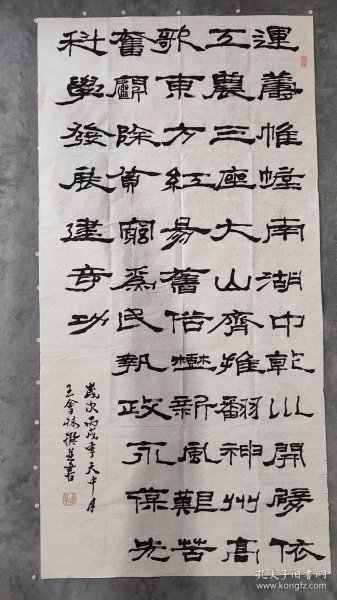 運籌惟幄南湖中乾川開辟依
工農三座大山齊推翻神州高
歌東方紅易舊俗樹新風艱苦
奮鬭除貧窮為民執政永葆先
科學發展建奇功
歲次丙戌季天中月
王會林撰并書
孔夫子旧书网